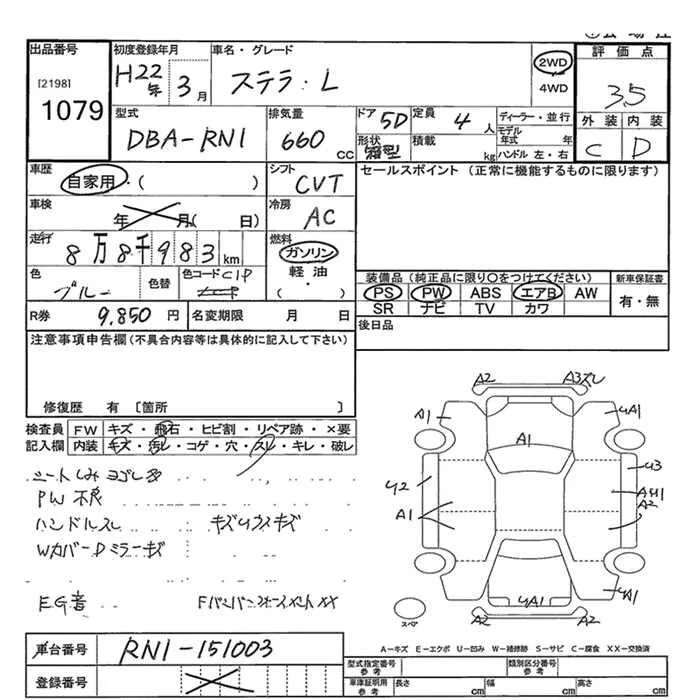 出品番号 初度登録年月 車名・グレード 評価点
[2198] H22年 3月 ステラ:L 2WD 3.5
1079 4WD
型式 排気量 ドア 5D 定員 4人 ディーラー・並行 外装 内装
DBA-RN1 660cc 形状 箱型 積載 kg モデル年式 年 C D
ハンドル 左・右
車歴 シフト セールスポイント(正常に機能するものに限ります)
自家用・( ) CVT
車検 冷房
年 月( 日) AC
走行 燃料
8万8千983km ガソリン
色 色替 色コード C1P 軽油 装備品(純正品に限り○をつけてください) 新車保証書
ブルー ・( ) PS PW ABS エアB AW 有・無
SR ナビ TV カワ
R券 9,850円 名変期限 月 日 後日品
注意事項申告欄(不具合内容等は具体的に記入して下さい)
修復歴 有〔箇所 〕
検査員 FW キズ・飛石・ヒビ割・リペア跡・×要
記入欄 内装 キズ・汚レ・コゲ・穴・スレ・キレ・破レ
シートしみ ヨゴレ多
PW 不良
ハンドルスレ キズUタスキズ
Wカバー Dミラーキズ
EG音
A2 A3ズレ
A1 UA1
A1
U2 U3
A1 AU1
A2
UA1 UA1
A2 A2
スペア
A-キズ E-エクボ U-凹み W-補修跡 S-サビ C-腐食 XX-交換済
車台番号 RN1-151003
登録番号
型式指定番号 参考 類別区分番号 参考
車庫証明用 参考 長さ cm 幅 cm 高さ cm